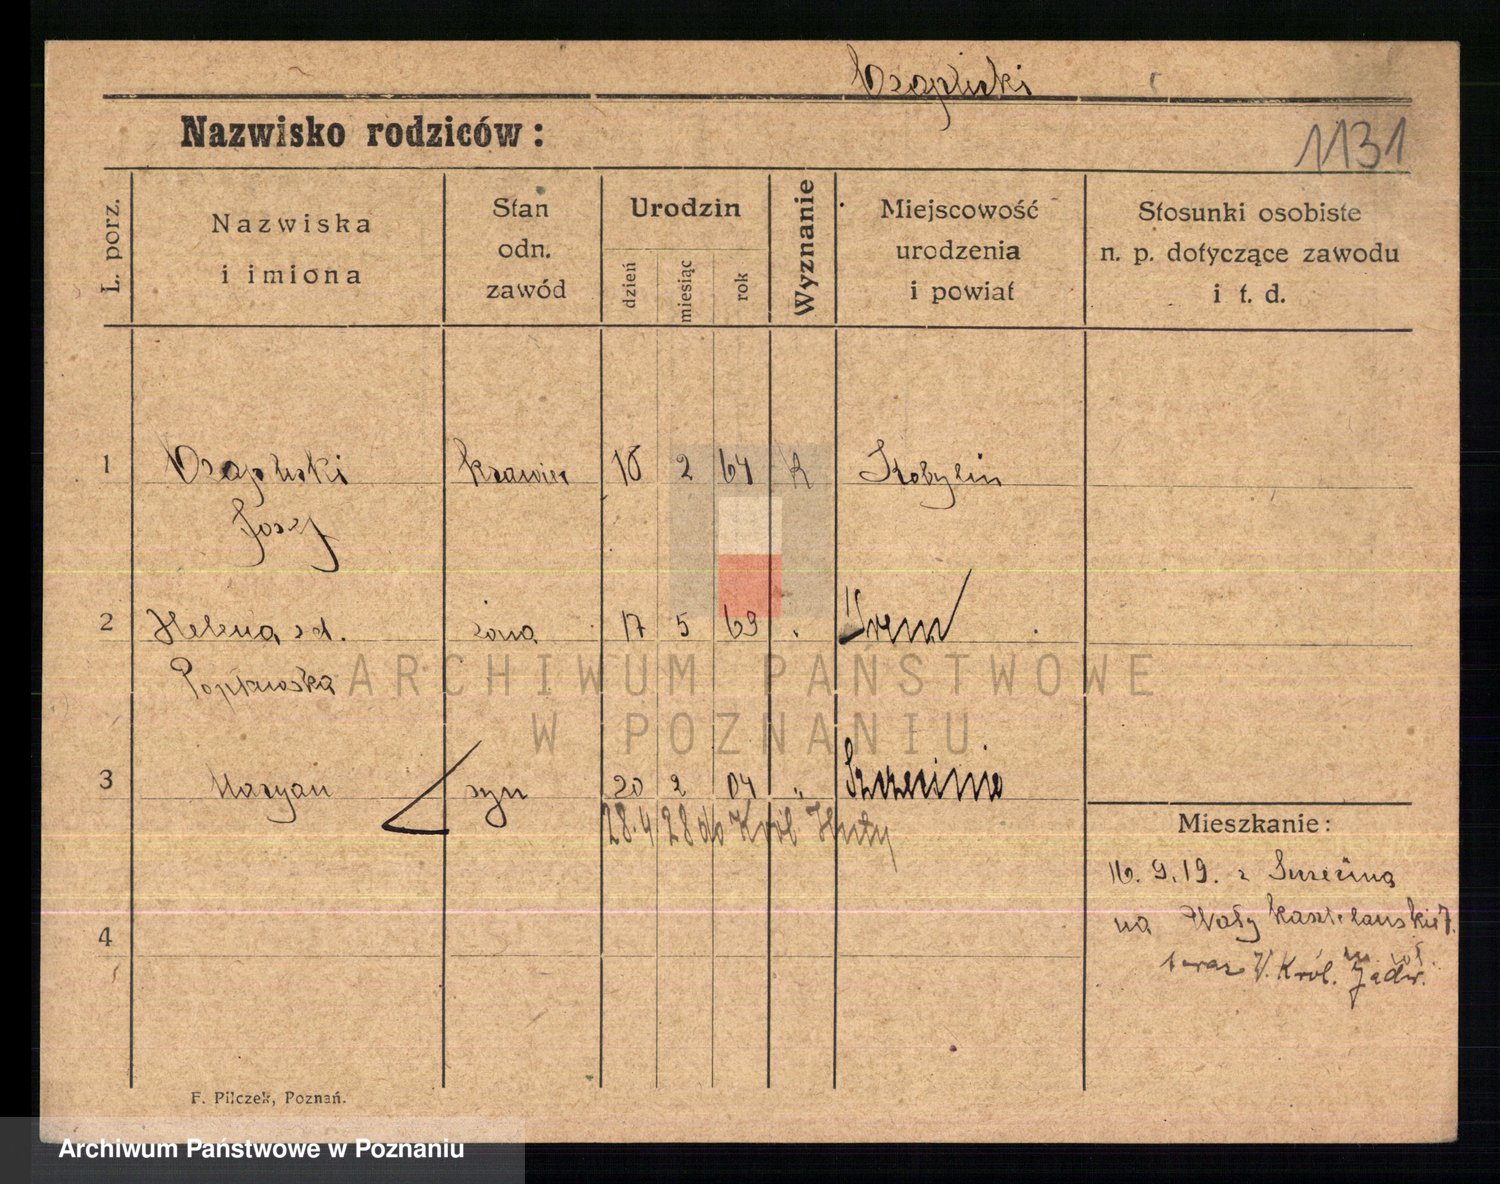 Czaplicki
Nazwisko rodziców:
1131
L. porz.
Nazwiska
i imiona
Stan
odn.
zawód
Urodzin
dzień
miesiąc
rok
Wyznanie
Miejscowość
urodzenia
i powiat
Stosunki osobiste
n. p. dotyczące zawodu
i t. d.
1 Czaplicki krawiec 18 2 64 K Kobylin
Józef
2 Helena zd. żona 17 5 63 " Śrem
3 Maryan syn 20 2 04 "
28.4 28 do Król Huty
Mieszkanie:
16. 9. 19. z
na Wały
teraz Król. Jadw.
4
F. Pilczek, Poznań.
ARCHIWUM PAŃSTWOWE
W POZNANIU
Archiwum Państwowe w Poznaniu